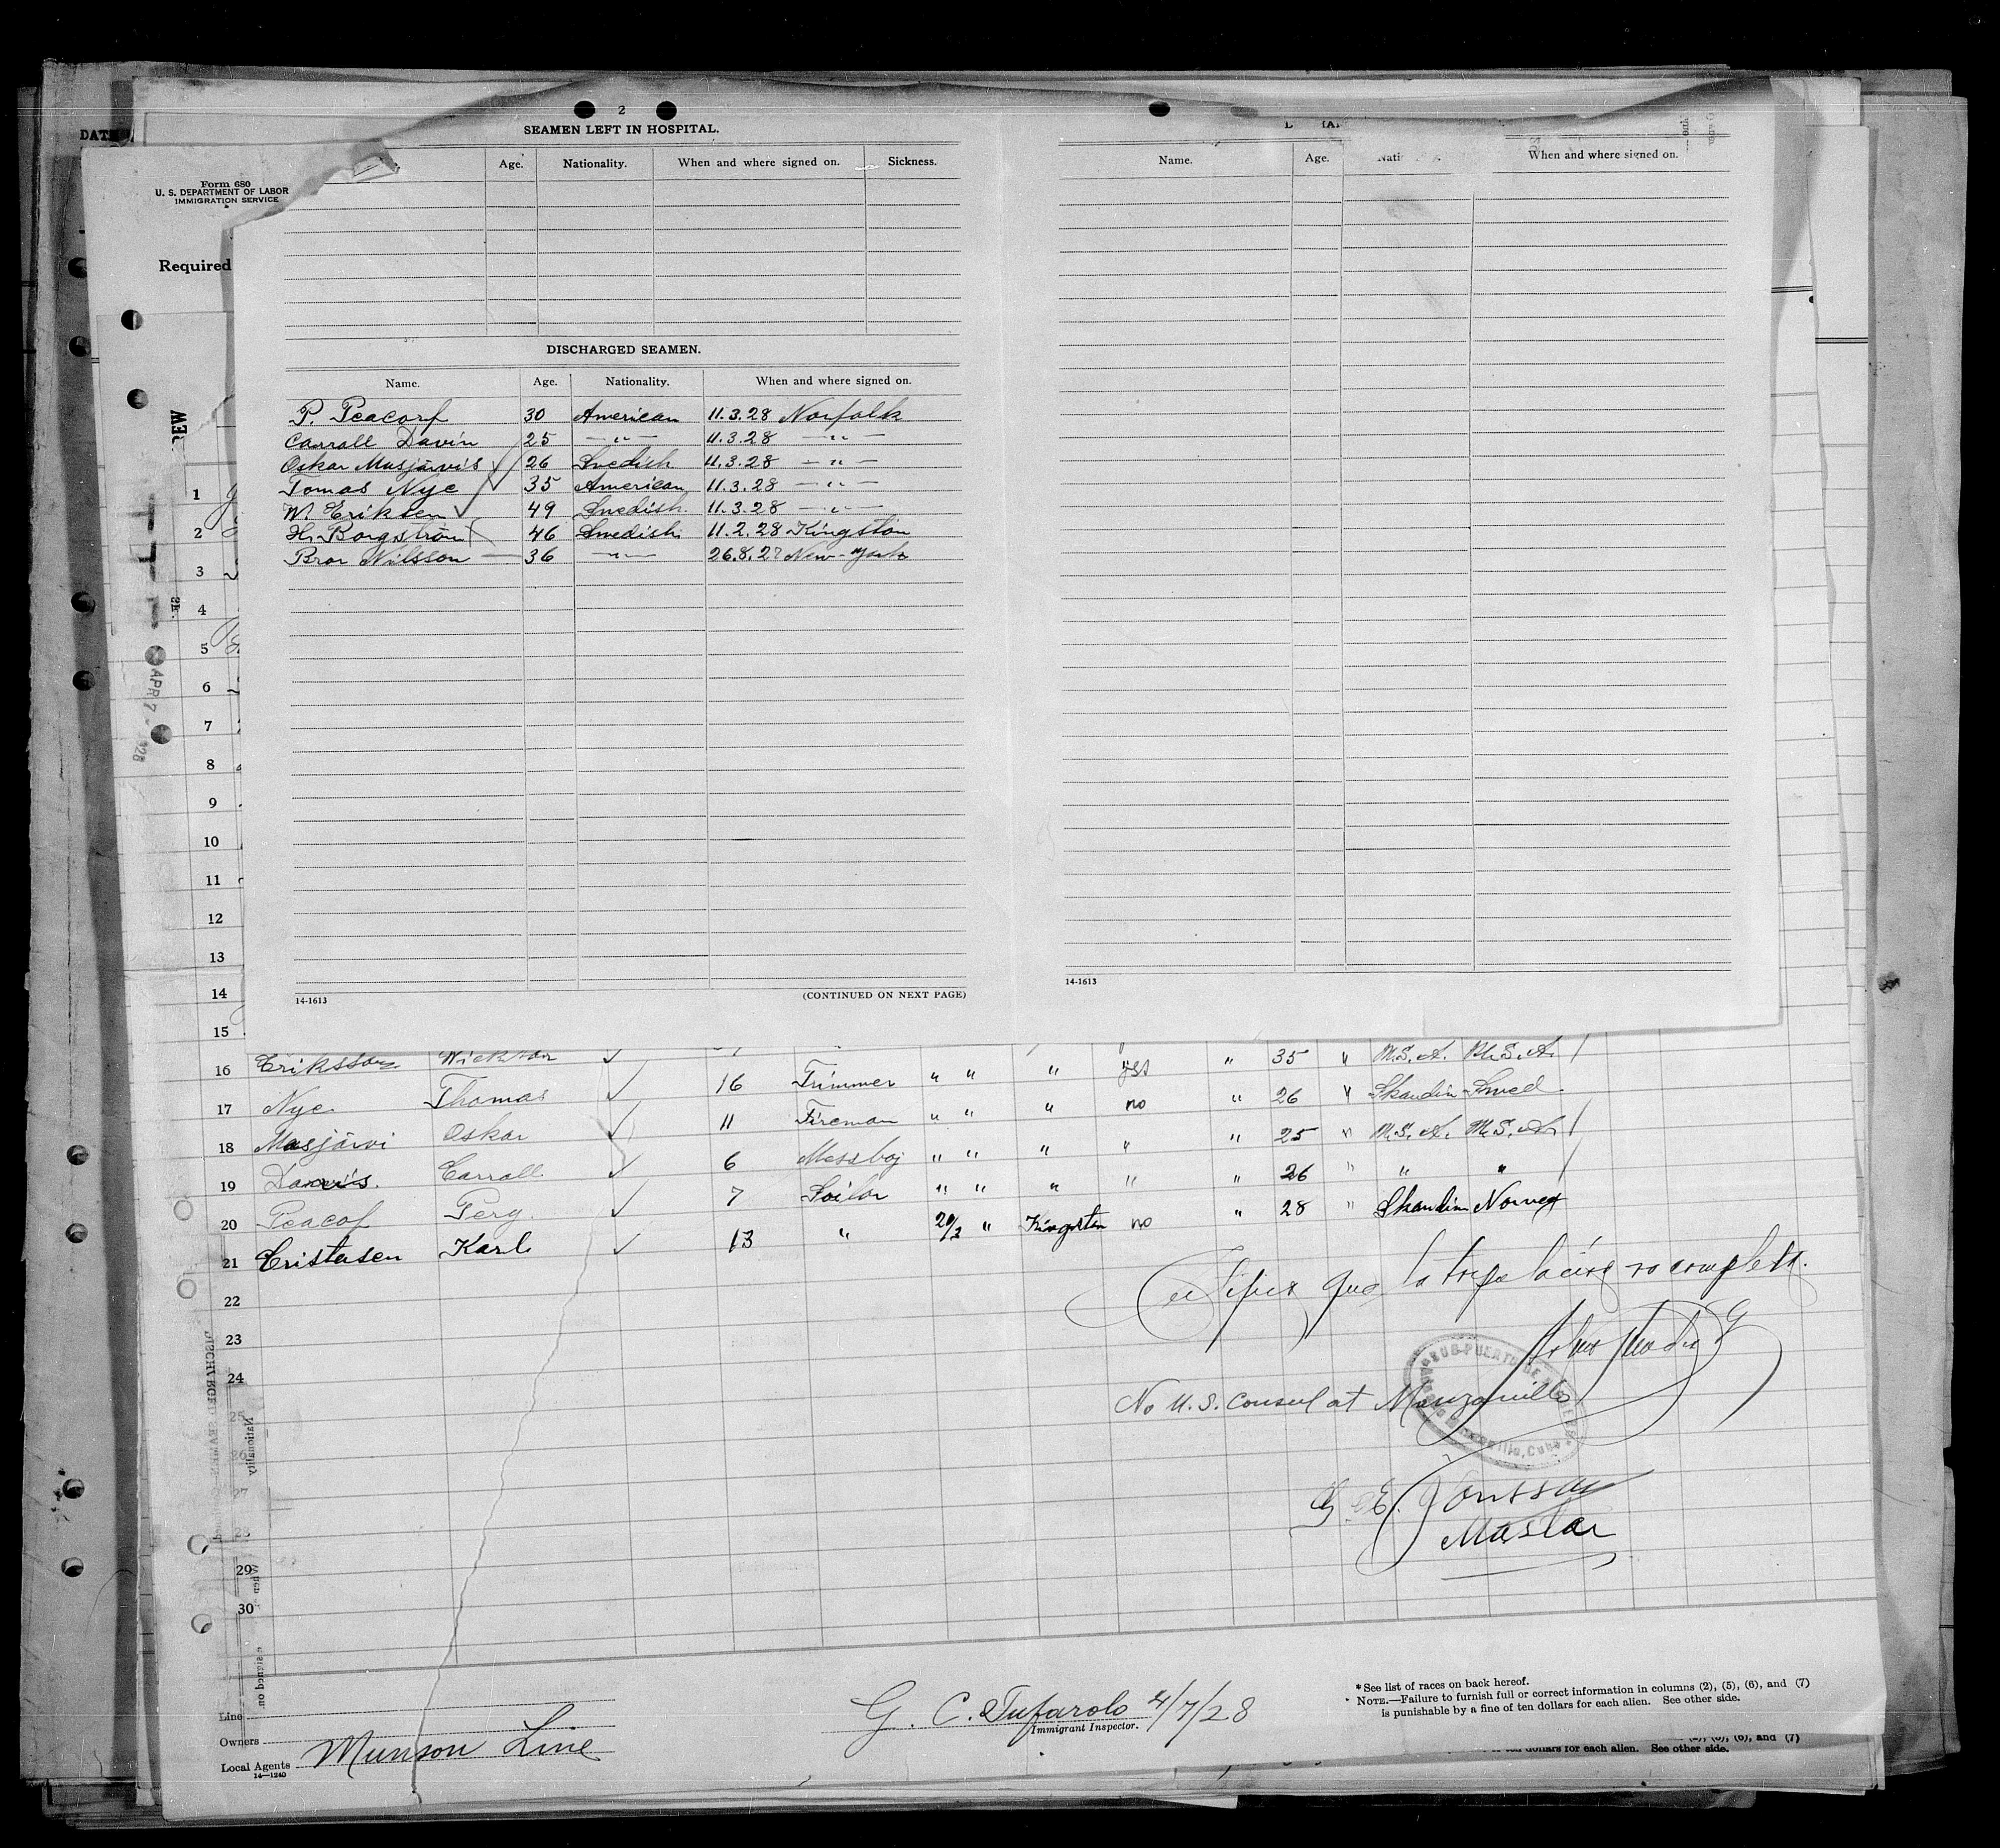 2
SEAMEN LEFT IN HOSPITAL.
Age. Nationality. When and where signed on. Sickness.
Name. Age. When and where signed on.
DATE
Form 680
U. S. DEPARTMENT OF LABOR
IMMIGRATION SERVICE
Required
DISCHARGED SEAMEN.
Name. Age. Nationality. When and where signed on.
P. Peacorf 30 American 11.3.28 Norfolk
Carrall Davin 25 —"— 11.3.28 —"—
Oskar Musjärvis 26 Swedish 11.3.28 —"—
Tomas Nye 35 American 11.3.28 —"—
W. Eriksen 49 Swedish 11.3.28 —"—
H. Borgström 46 Swedish 11.2.28 Kingston
Bror Nilsson — 36 —"— 26.8.27 New-York
1
2
3
4
5
6
7
8
9
10
11
12
13
14
15
APR 7 - 1928
14-1613 (CONTINUED ON NEXT PAGE)
14-1613
16 Eriksson Wicktor ✓ yes " 35 " U.S.A. U.S.A. /
17 Nye Thomas ✓ 16 Trimmer " " " no " 26 " Skandin Swed.
18 Masjärvi Oskar ✓ 11 Fireman " " " " " 25 " U.S.A. U.S.A. /
19 Davis. Carroll ✓ 6 Messboj " " " " " 26 " " " /
20 Peacof Perg. ✓ 7 Sailor " " " " " 28 " Skandin Norweg
21 Cristensen Karl ✓ 13 " 20/3 " Kingston no
22
23
24
25
26
27
28
29
30
Certifico que la
No U.S. Consul at Manzanillo
SUB-PUERTO DE
Manzanillo, Cuba
G. E. Jonsson
Master
Line
Owners
Local Agents Munson Line
14—1240
G. C. Tufarolo 4/7/28
Immigrant Inspector.
* See list of races on back hereof.
NOTE.—Failure to furnish full or correct information in columns (2), (5), (6), and (7)
is punishable by a fine of ten dollars for each alien. See other side.
(6), and (7)
dollars for each alien. See other side.